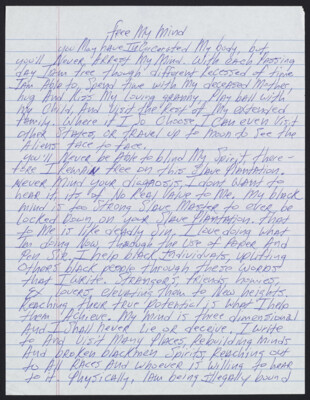 Free My Mind
you May have InCarcerated My body, but
you'll Never Arrest My Mind. With each Passing
day I am free though different recesses of time
I am Able to, Spend time with My deceased Mother,
hug And Kiss My loving granny, Play ball with
my Child And Visit the rest of My extended
family. Where if I So Choose, I can even Visit
other States, or travel up to Moon to See the
Aliens face to face.
You'll Never be Able to blind My Spirit there-
fore I remain free on this Slave Plantation.
Never Mind your diagnosis, I dont Want to
hear it, its of No Real Value to Me. My black
mind is to Strong Slave Master to ever be
locked Down, on your Slave Plantation. That
to Me is like deadly Sin. I love doing what
I'm doing Now, through the use of Paper And
Pen Sir. I help black Individuals, uplifting
others black people through these Words
that I Write. Strangers, friends, homies,
& lovers, elevating them to New heights.
Reaching their true Potential is what I help
them Achieve. My mind is three dimensional
And I Shall Never lie or deceive. I write
to And Visit Many Places, Rebuilding Minds
And broken blackmen Spirits, Reaching out
to All Races And whoever is Willing to hear
to it. Physically, I am being Illegally bound